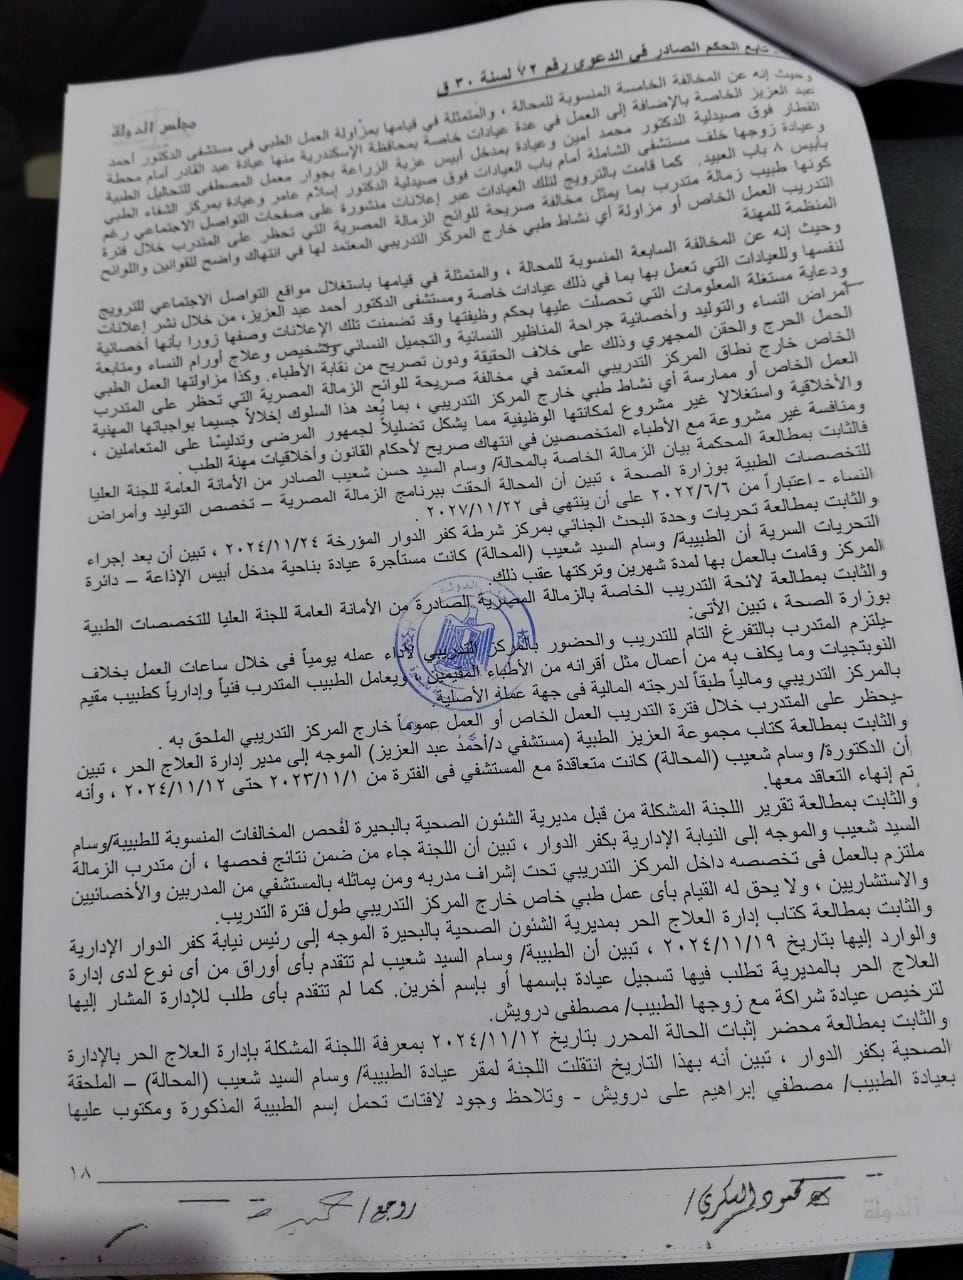 تابع الحكم الصادر في الدعوى رقم ٧٢ لسنة ٣٠ ق
مجلس الدولة
وحيث إنه عن المخالفة الخامسة المنسوبة للمحالة ، والمتمثلة في قيامها بمزاولة العمل الطبي في مستشفى الدكتور أحمد
عبد العزيز الخاصة بالإضافة إلى العمل في عدة عيادات خاصة بمحافظة الإسكندرية منها عيادة عبد القادر أمام محطة
القطار فوق صيدلية الدكتور محمد أمين وعيادة بمدخل أبيس عزبة الزراعة بجوار معمل المصطفى للتحاليل الطبية
وعيادة زوجها خلف مستشفى الشاملة أمام باب العيادات فوق صيدلية الدكتور إسلام عامر وعيادة بمركز الشفاء الطبي
بأبيس ٨ باب العبيد. كما قامت بالترويج لتلك العيادات عبر إعلانات منشورة على صفحات التواصل الاجتماعي رغم
كونها طبيب زمالة متدرب بما يمثل مخالفة صريحة للوائح الزمالة المصرية التي تحظر على المتدرب خلال فترة
التدريب العمل الخاص أو مزاولة أي نشاط طبي خارج المركز التدريبي المعتمد لها في انتهاك واضح للقوانين واللوائح
المنظمة للمهنة
وحيث إنه عن المخالفة السابعة المنسوبة للمحالة ، والمتمثلة في قيامها باستغلال مواقع التواصل الاجتماعي للترويج
لنفسها وللعيادات التي تعمل بها بما في ذلك عيادات خاصة ومستشفى الدكتور أحمد عبد العزيز، من خلال نشر إعلانات
ودعاية مستغلة المعلومات التي تحصلت عليها بحكم وظيفتها وقد تضمنت تلك الإعلانات وصفها زورا بأنها أخصائية
أمراض النساء والتوليد وأخصائية جراحة المناظير النسائية والتجميل النسائي وتشخيص وعلاج أورام النساء ومتابعة
الحمل الحرج والحقن المجهري وذلك على خلاف الحقيقة ودون تصريح من نقابة الأطباء. وكذا مزاولتها العمل الطبي
الخاص خارج نطاق المركز التدريبي المعتمد في مخالفة صريحة للوائح الزمالة المصرية التي تحظر على المتدرب
العمل الخاص أو ممارسة أي نشاط طبي خارج المركز التدريبي ، بما يُعد هذا السلوك إخلالاً جسيما بواجباتها المهنية
والأخلاقية واستغلالا غير مشروع لمكانتها الوظيفية مما يشكل تضليلاً لجمهور المرضى وتدليسًا على المتعاملين ،
ومنافسة غير مشروعة مع الأطباء المتخصصين في انتهاك صريح لأحكام القانون وأخلاقيات مهنة الطب .
فالثابت بمطالعة المحكمة بيان الزمالة الخاصة بالمحالة/ وسام السيد حسن شعيب الصادر من الأمانة العامة للجنة العليا
للتخصصات الطبية بوزارة الصحة ، تبين أن المحالة ألحقت ببرنامج الزمالة المصرية – تخصص التوليد وأمراض
النساء - اعتباراً من ٢٠٢٢/٦/٦ على أن ينتهي فى ٢٠٢٧/١١/٢٢ .
والثابت بمطالعة تحريات وحدة البحث الجنائي بمركز شرطة كفر الدوار المؤرخة ٢٠٢٤/١١/٢٤ ، تبين أن بعد إجراء
التحريات السرية أن الطبيبة/ وسام السيد شعيب (المحالة) كانت مستأجرة عيادة بناحية مدخل أبيس الإذاعة – دائرة
المركز وقامت بالعمل بها لمدة شهرين وتركتها عقب ذلك.
والثابت بمطالعة لائحة التدريب الخاصة بالزمالة المصرية الصادرة من الأمانة العامة للجنة العليا للتخصصات الطبية
بوزارة الصحة ، تبين الأتى:
-يلتزم المتدرب بالتفرغ التام للتدريب والحضور بالمركز التدريبي لأداء عمله يومياً فى خلال ساعات العمل بخلاف
النوبتجيات وما يكلف به من أعمال مثل أقرانه من الأطباء المقيمين ويعامل الطبيب المتدرب فنياً وإدارياً كطبيب مقيم
بالمركز التدريبي ومالياً طبقاً لدرجته المالية فى جهة عمله الأصلية
-يحظر على المتدرب خلال فترة التدريب العمل الخاص أو العمل عموماً خارج المركز التدريبي الملحق به .
والثابت بمطالعة كتاب مجموعة العزيز الطبية (مستشفي د/أحمد عبد العزيز) الموجه إلى مدير إدارة العلاج الحر ، تبين
أن الدكتورة/ وسام شعيب (المحالة) كانت متعاقدة مع المستشفي فى الفترة من ٢٠٢٣/١١/١ حتى ٢٠٢٤/١١/١٢ ، وأنه
تم إنهاء التعاقد معها.
والثابت بمطالعة تقرير اللجنة المشكلة من قبل مديرية الشئون الصحية بالبحيرة لفحص المخالفات المنسوبة للطبيبة/وسام
السيد شعيب والموجه إلى النيابة الإدارية بكفر الدوار ، تبين أن اللجنة جاء من ضمن نتائج فحصها ، أن متدرب الزمالة
ملتزم بالعمل فى تخصصه داخل المركز التدريبي تحت إشراف مدربه ومن يماثله بالمستشفي من المدربين والأخصائيين
والاستشاريين ، ولا يحق له القيام بأى عمل طبي خاص خارج المركز التدريبي طول فترة التدريب.
والثابت بمطالعة كتاب إدارة العلاج الحر بمديرية الشئون الصحية بالبحيرة الموجه إلى رئيس نيابة كفر الدوار الإدارية
والوارد إليها بتاريخ ٢٠٢٤/١١/١٩ ، تبين أن الطبيبة/ وسام السيد شعيب لم تتقدم بأى أوراق من أى نوع لدى إدارة
العلاج الحر بالمديرية تطلب فيها تسجيل عيادة بإسمها أو بإسم أخرين. كما لم تتقدم بأى طلب للإدارة المشار إليها
لترخيص عيادة شراكة مع زوجها الطبيب/ مصطفى درويش.
والثابت بمطالعة محضر إثبات الحالة المحرر بتاريخ ٢٠٢٤/١١/١٢ بمعرفة اللجنة المشكلة بإدارة العلاج الحر بالإدارة
الصحية بكفر الدوار ، تبين أنه بهذا التاريخ انتقلت اللجنة لمقر عيادة الطبيبة/ وسام السيد شعيب (المحالة) – الملحقة
بعيادة الطبيب/ مصطفي إبراهيم على درويش - وتلاحظ وجود لافتات تحمل إسم الطبيبة المذكورة ومكتوب عليها
١٨
محمود السكري/
روجع/